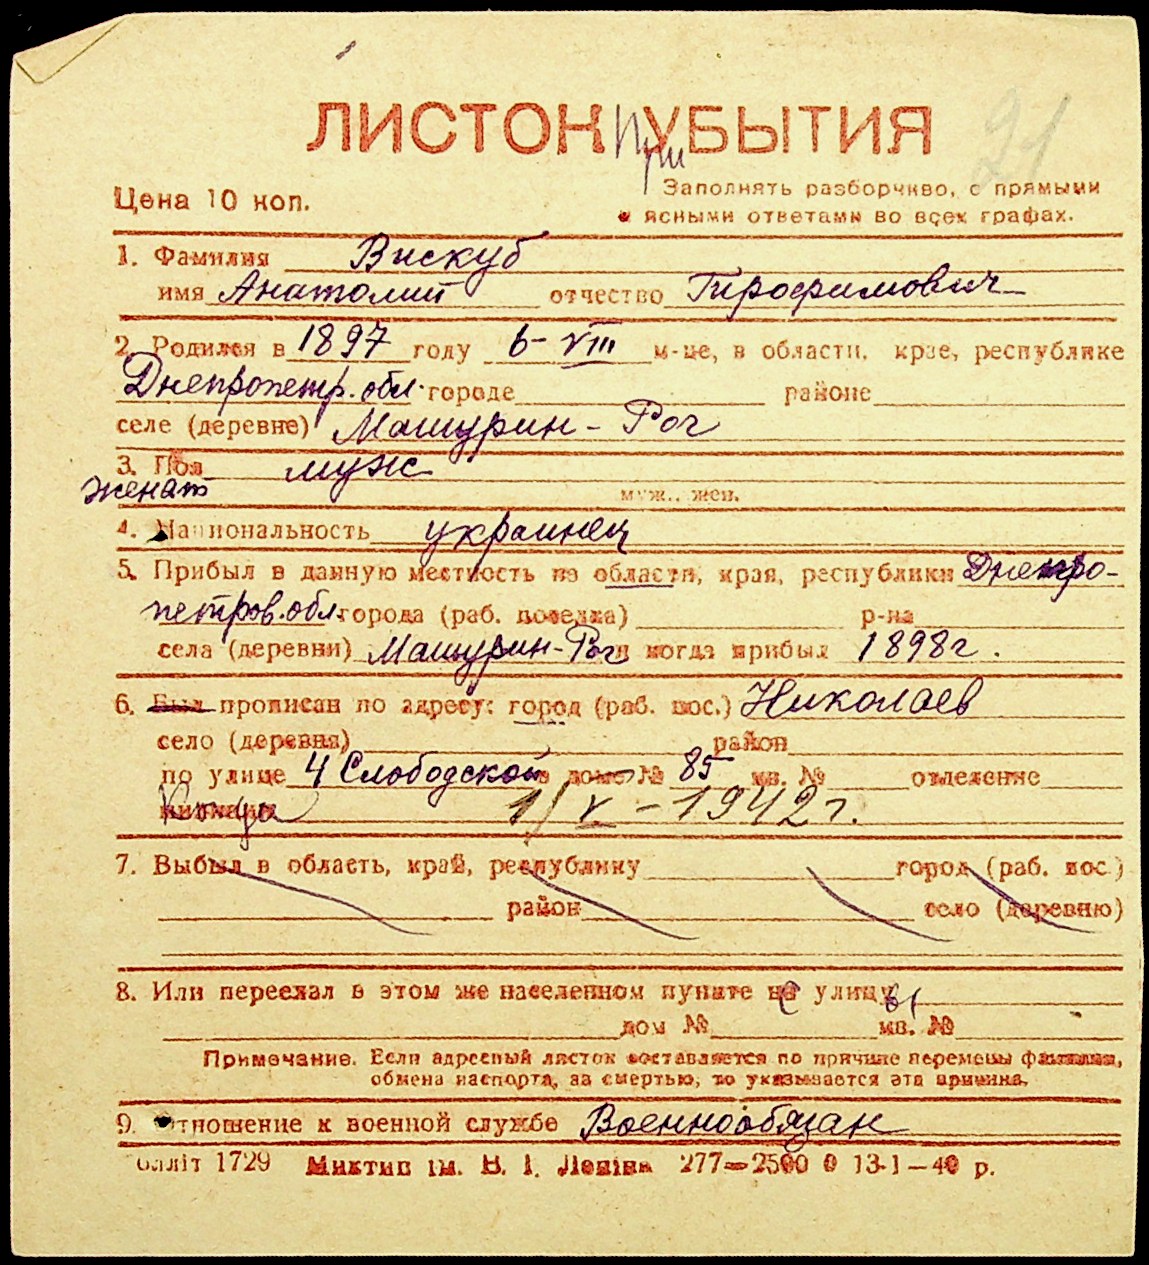 21
ЛИСТОК УБЫТИЯ
При
Цена 10 коп.
Заполнять разборчиво, с прямыми
и ясными ответами во всех графах.
1. Фамилия Вискуб
имя Анатолий отчество Трофимович
2. Родился в 1897 году 6-VIII м-це, в области, крае, республике
Днепропетр. обл. городе районе
селе (деревне) Машурин-Рог
3. Пол муж
женат муж., жен.
4. Национальность украинец
5. Прибыл в данную местность из области, края, республики Днепро-
петров. обл. города (раб. поселка) р-на
села (деревни) Машурин-Рог и когда прибыл 1898 г.
6. Был прописан по адресу: город (раб. пос.) Николаев
село (деревня) район
по улице 4 Слободской в доме № 85 кв. № отделение
милиции Когда 1/V-1942 г.
7. Выбыл в область, край, республику город (раб. пос.)
район село (деревню)
8. Или переехал в этом же населенном пункте на с улицу ы
дом № кв. №
Примечание. Если адресный листок составляется по причине перемены фамилии,
обмена паспорта, за смертью, то указывается эта причина.
9. Отношение к военной службе Военнообязан
оллліт 1729 Миктип ім. В. І. Леніна 277—2500 0 13-1—40 р.